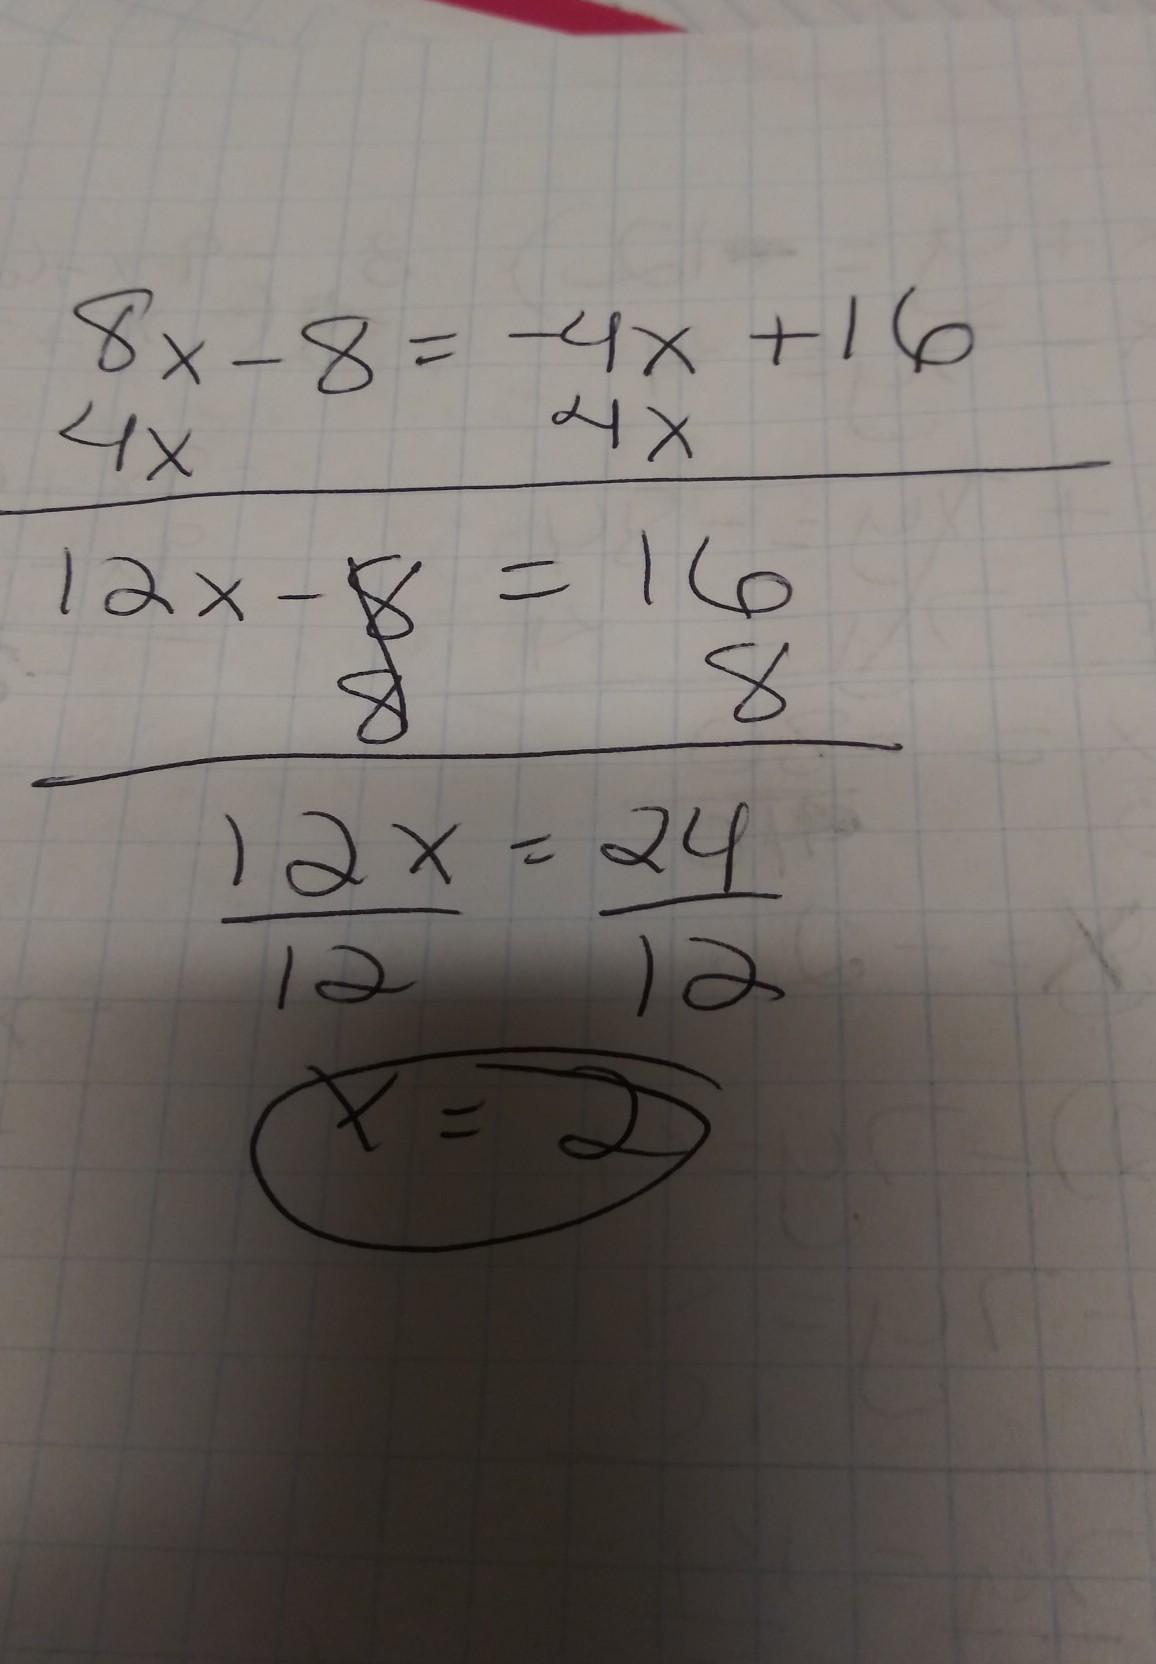 8x-8=-4x+16
4x 4x
12x-8=16
8 8
12x=24
12 12
x=2